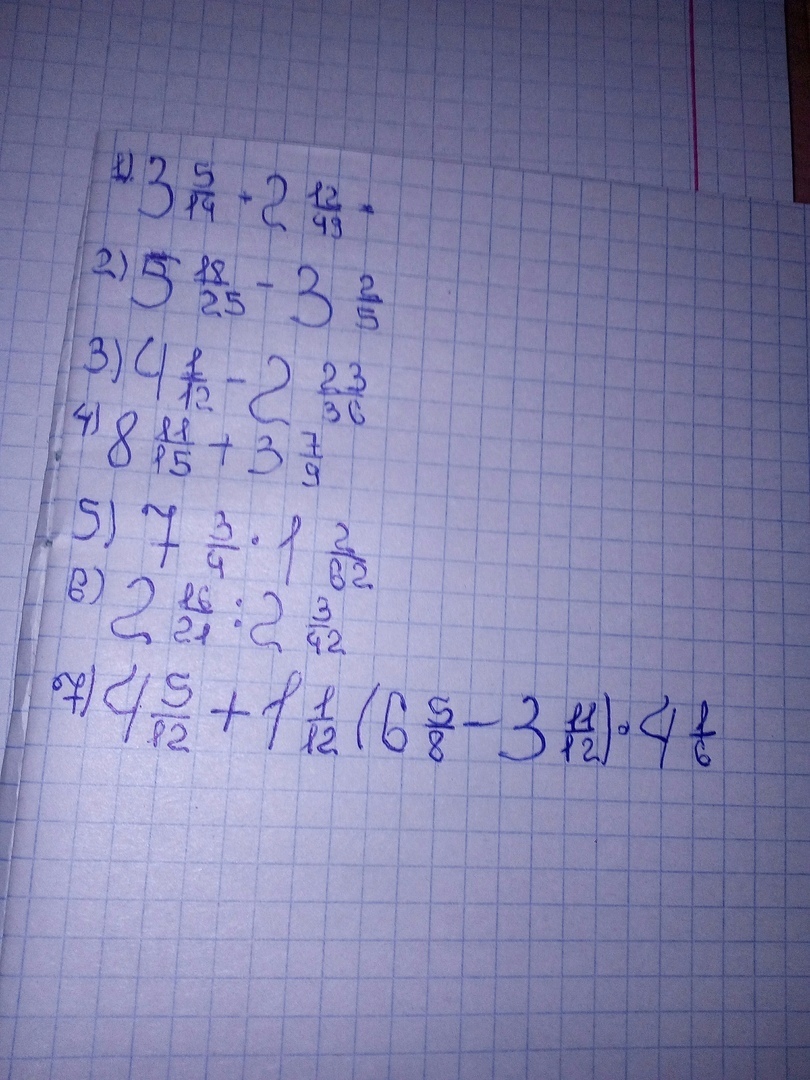 1) 3 5/14 · 2 12/49 ·
2) 5 18/25 - 3 2/5
3) 4 1/12 - 2 23/36
4) 8 11/15 + 3 7/9
5) 7 3/4 · 1 2/62
6) 2 16/21 : 2 3/42
7) 4 5/12 + 1 1/12 (6 5/8 - 3 11/12) · 4 1/6